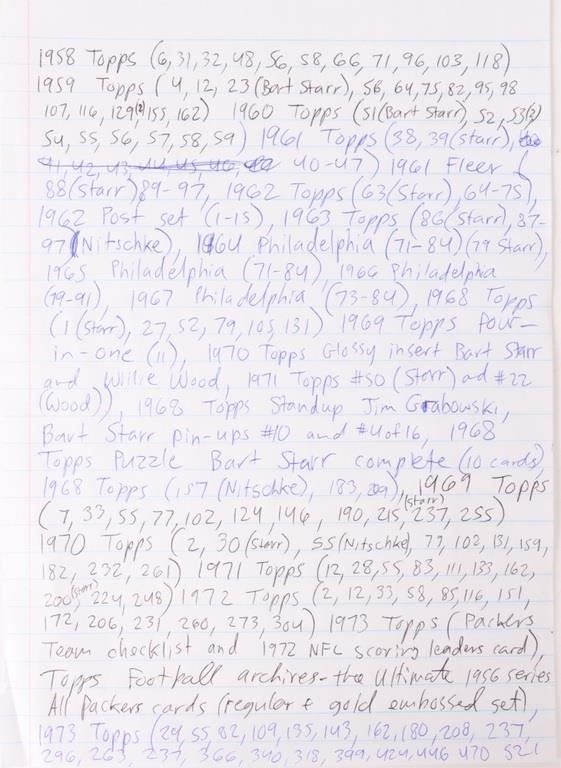 1958 Topps (6, 31, 32, 48, 56, 58, 66, 71, 96, 103, 118)
1959 Topps (4, 12, 23 (Bart Starr), 56, 64, 75, 82, 95, 98
107, 116, 129(2) 155, 162) 1960 Topps (51 (Bart Starr), 52, 53(2)
54, 55, 56, 57, 58, 59) 1961 Topps (38, 39 (Starr),
41, 42, 43, 44, 45, 46, 40-47) 1961 Fleer (
88 (Starr) 89-97, 1962 Topps (63 (Starr), 64-75),
1962 Post set (1-15), 1963 Topps (86 (Starr), 87-
97 (Nitschke), 1964 Philadelphia (71-84) (79 Starr),
1965 Philadelphia (71-84), 1966 Philadelphia
(79-91), 1967 Philadelphia (73-84), 1968 Topps
(1 (Starr), 27, 52, 79, 105, 131) 1969 Topps four-
in-one (11), 1970 Topps Glossy insert Bart Starr
and Willie Wood, 1971 Topps #50 (Starr) ad #22
(Wood)), 1968 Topps Standup Jim Grabowski,
Bart Starr pin-ups #10 and #4 of 16, 1968
Topps Puzzle Bart Starr complete (10 cards)
1968 Topps (157 (Nitschke), 183, 209), 1969 Topps
(7, 33, 55, 77, 102, 124, 146, 190, 215 (Starr), 237, 255)
1970 Topps (2, 30 (Starr), 55 (Nitschke), 77, 102, 131, 159,
182, 232, 261) 1971 Topps (12, 28, 55, 83, 111, 133, 162,
200 (Starr), 224, 248) 1972 Topps (2, 12, 33, 58, 85, 116, 151,
172, 206, 231, 260, 273, 304) 1973 Topps (Packers
Team checklist and 1972 NFL scoring leaders card),
Topps Football archives-the Ultimate 1956 series
All Packers cards (regular + gold embossed set),
1973 Topps (29, 55, 82, 109, 135, 143, 162, 180, 208, 237,
296, 263, 237, 366, 340, 318, 399, 424, 446 470 521